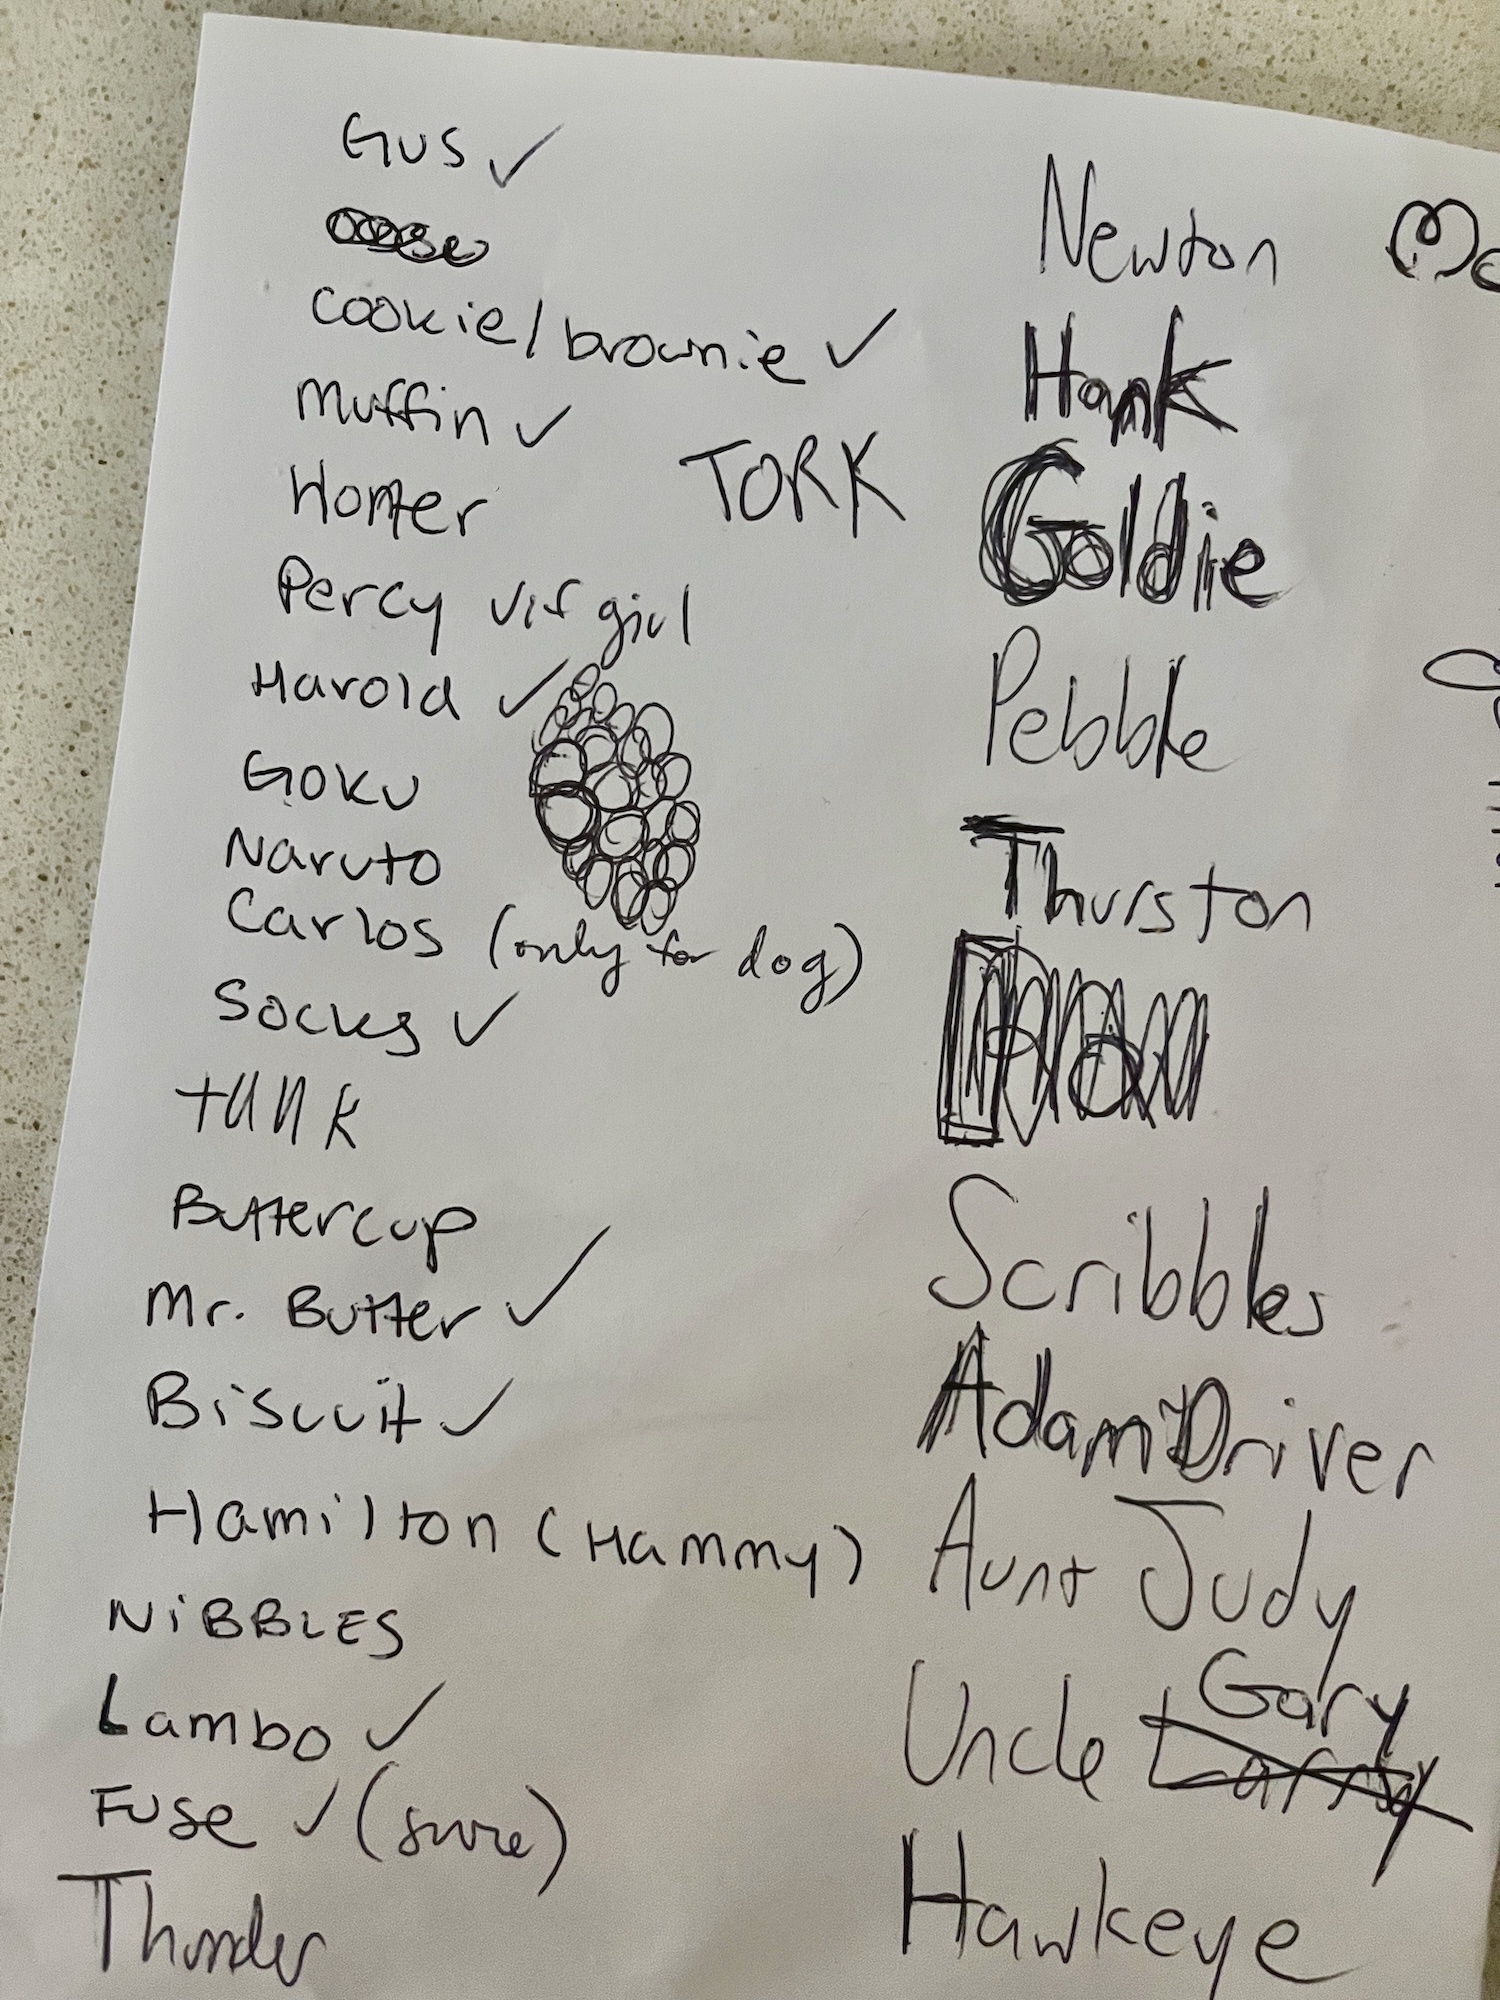 Gus ✓
Cookie/brownie ✓
Muffin ✓
Homer
TORK
Percy ✓ if girl
Harold ✓
Goku
Naruto
Carlos (only for dog)
Socks ✓
tank
Buttercup
Mr. Butter ✓
Biscuit ✓
Hamilton (Hammy)
NiBBLES
Lambo ✓
Fuse ✓ (sure)
Thunder
Newton
Hank
Goldie
Pebble
Thurston
Scribbles
Adam Driver
Aunt Judy
Gary
Uncle Larry
Hawkeye